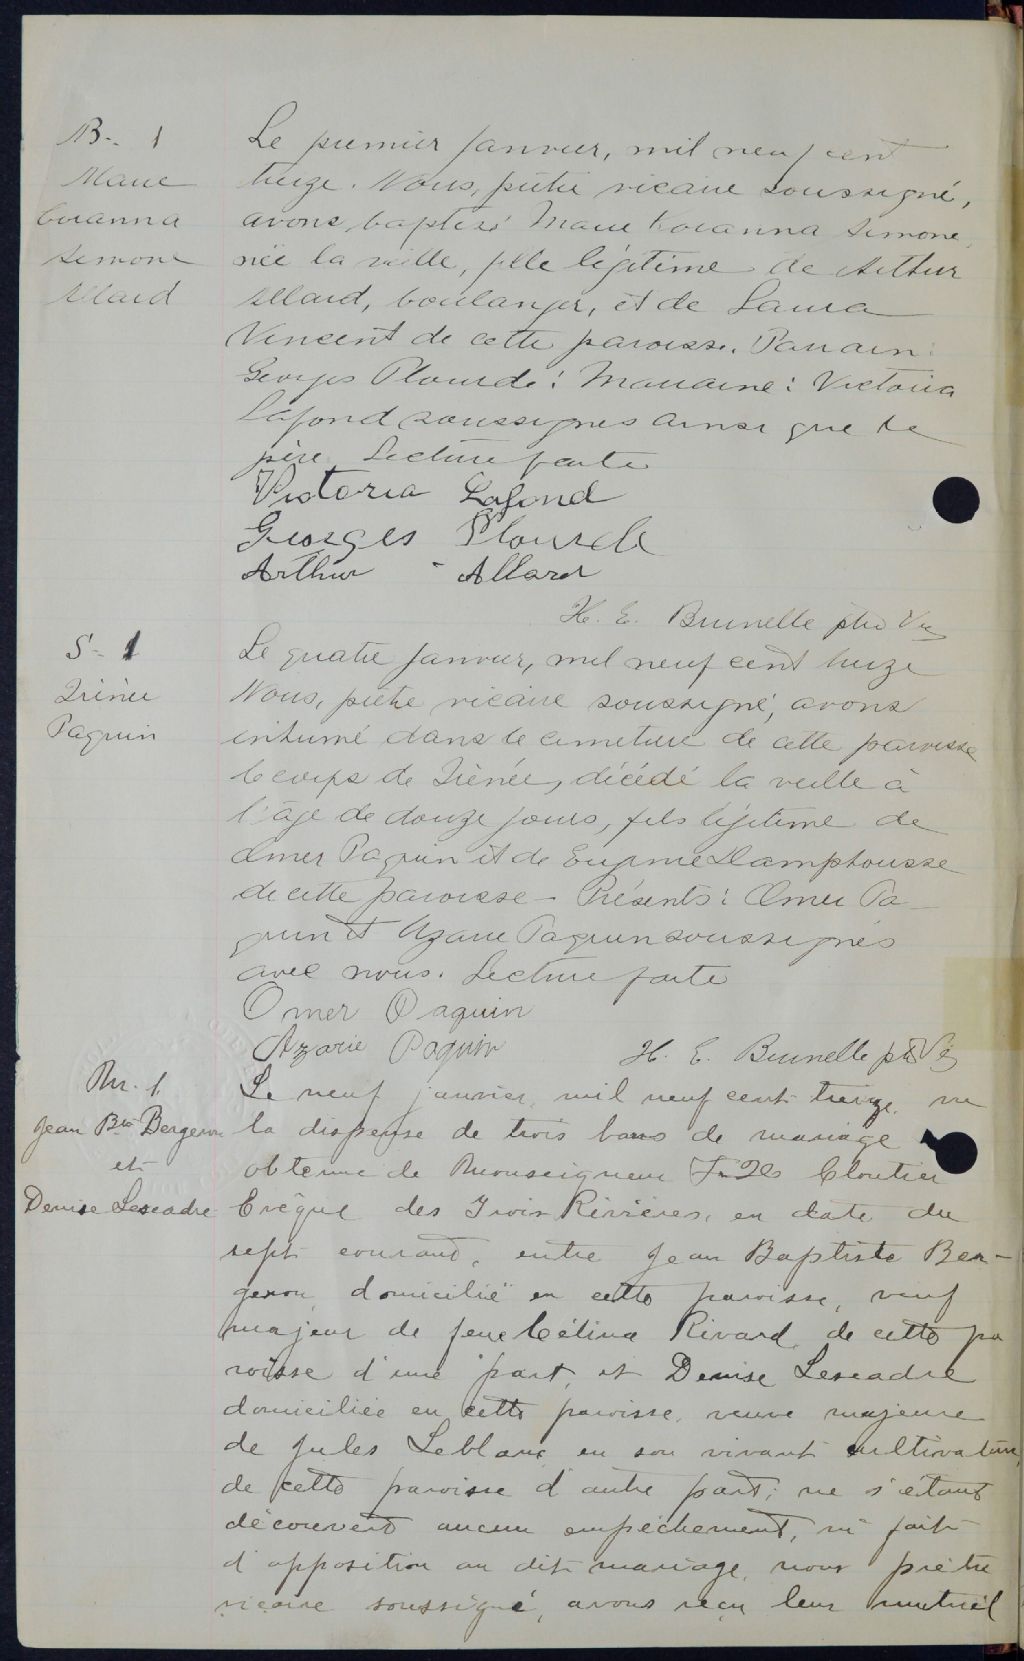 B- 1
Marie
Simone
Allard
Le premier janvier, mil neuf cent
treize. Nous, prêtre vicaire soussigné,
avons baptisé Marie Simone
née la veille, fille légitime de Arthur
Allard, boulanger, et de Laura
Vincent de cette paroisse. Parrain:
Georges Plourde: Marraine: Victoria
Lafond soussignés ainsi que le
père. Lecture faite
Victoria Lafond
Georges Plourde
Arthur Allard
H. E. Brunelle ptre Vic
S- 1
Irénée
Paquin
Le quatre janvier, mil neuf cent treize
Nous, prêtre vicaire soussigné, avons
inhumé dans le cimetière de cette paroisse
le corps de Irénée, décédé la veille à
l'âge de douze jours, fils légitime de
Omer Paquin et de Eugénie Damphousse
de cette paroisse - Présents: Omer Pa-
quin et Azarie Paquin soussignés
avec nous. Lecture faite
Omer Paquin
Azarie Paquin
H. E. Brunelle ptre Vic
M. 1
Jean Bte Bergeron
et
Denise Lescadre
Le neuf janvier, mil neuf cent treize, vu
la dispense de trois bans de mariage
obtenue de Monseigneur F. X. Cloutier
Evêque des Trois Rivières, en date du
sept courant, entre Jean Baptiste Ber-
geron, domicilié en cette paroisse, veuf
majeur de feue Célina Rivard, de cette pa
roisse d'une part, et Denise Lescadre
domiciliée en cette paroisse, veuve majeure
de Jules Leblanc en son vivant cultivateur,
de cette paroisse d'autre part; ne s'étant
découvert aucun empêchement, ni fait
d'opposition au dit mariage, nous prêtre
vicaire soussigné, avons reçu leur mutuel